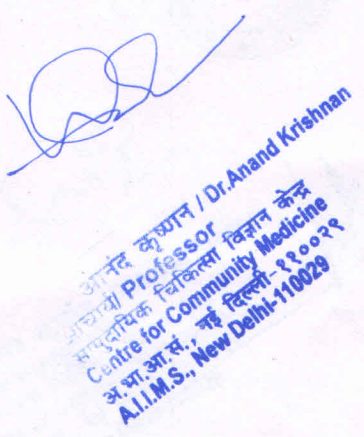 आनंद कृष्णान / Dr.Anand Krishnan
आचार्य/ Professor
सामुदायिक चिकित्सा विज्ञान केन्द्र
Centre for Community Medicine
अ.भा.आ.सं., नई दिल्ली-११००२९
A.I.I.M.S., New Delhi-110029